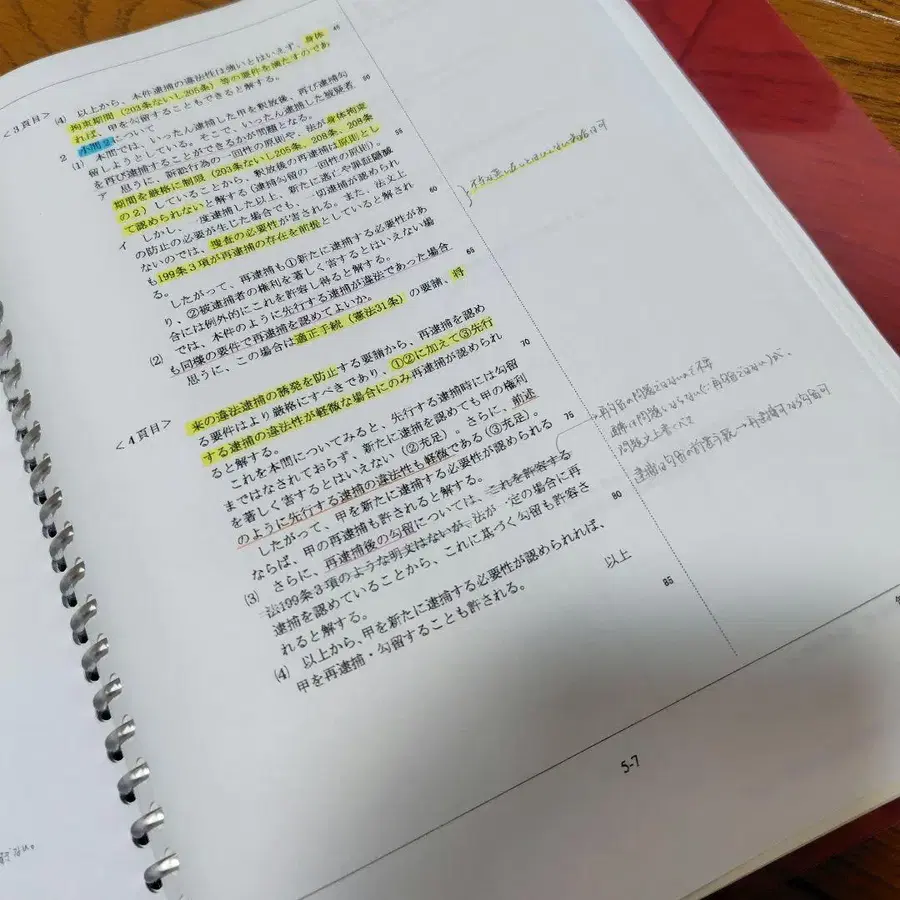 45
(4) 以上から、本件逮捕の違法性は強いとはいえず、身体
拘束期間（203条ないし205条）等の要件を満たすのであ
れば、甲を勾留することもできると解する。
<3頁目>
2 小問2について
50
(1) 本問では、いったん逮捕した甲を釈放後、再び逮捕勾
留しようとしている。そこで、いったん逮捕した被疑者
を再び逮捕することができるかが問題となる。
ア 思うに、訴訟行為の一回性の原則や、法が身体拘束
55
期間を厳格に制限（203条ないし205条、208条、208条
の2）していることから、釈放後の再逮捕は原則とし
て認められないと解する（逮捕勾留の一回性の原則）。
イ しかし、一度逮捕した以上、新たに逃亡や罪証隠滅
の防止の必要が生じた場合でも、一切逮捕が認められ
60
ないのでは、捜査の必要性が害される。また、法文上
も199条3項が再逮捕の存在を前提としていると解され
る。
したがって、再逮捕も①新たに逮捕する必要性があ
り、②被逮捕者の権利を著しく害するとはいえない場
65
合には例外的にこれを許容し得ると解する。
(2) では、本件のように先行する逮捕が違法であった場合
も同様の要件で再逮捕を認めてよいか。
思うに、この場合は適正手続（憲法31条）の要請、将
<4頁目>
来の違法逮捕の誘発を防止する要請から、再逮捕を認め
70
る要件はより厳格にすべきであり、①②に加えて③先行
する逮捕の違法性が軽微な場合にのみ再逮捕が認められ
ると解する。
これを本問についてみると、先行する逮捕時には勾留
まではなされておらず、新たに逮捕を認めても甲の権利
75
を著しく害するとはいえない（②充足）。さらに、前述
のように先行する逮捕の違法性も軽微である（③充足）。
したがって、甲を新たに逮捕する必要性が認められる
ならば、甲の再逮捕も許されると解する。
(3) さらに、再逮捕後の勾留については、これを許容する
80
法199条3項のような明文はないが、法が一定の場合に再
逮捕を認めていることから、これに基づく勾留も許容さ
れると解する。
(4) 以上から、甲を新たに逮捕する必要性が認められれば、
甲を再逮捕・勾留することも許される。
85
以上
逮捕は勾留の前置手続→再逮捕可なら勾留可
5-7